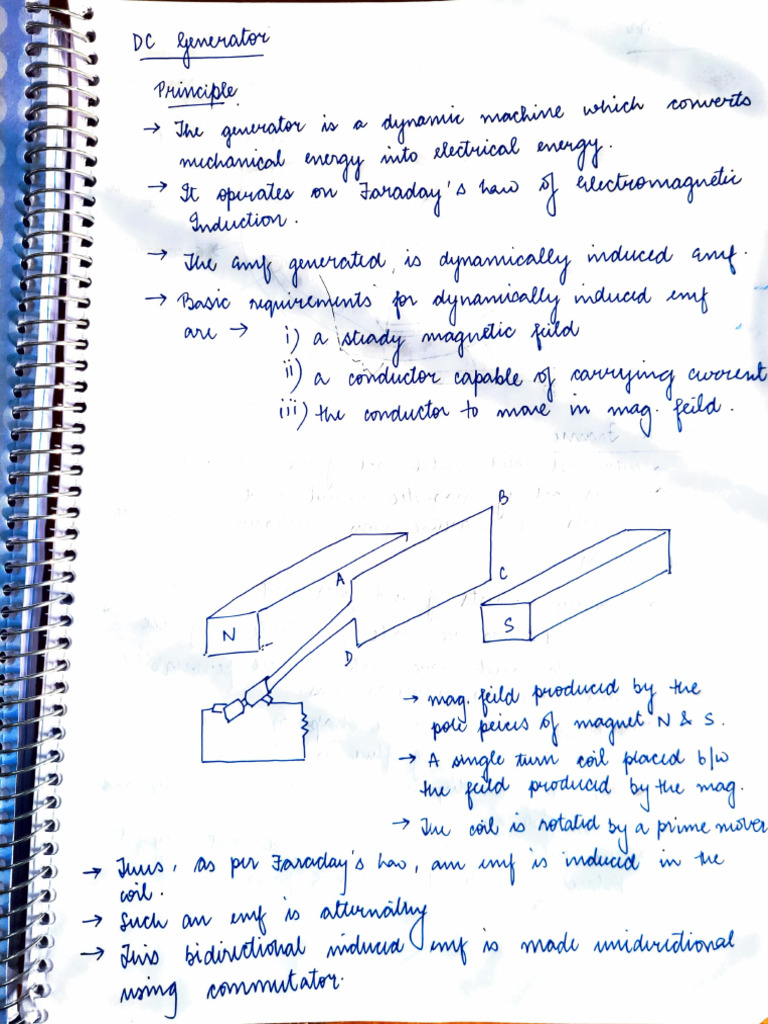 DC Generator
Principle
→ The generator is a dynamic machine which converts
mechanical energy into electrical energy.
→ It operates on Faraday's Law of Electromagnetic
Induction.
→ The emf generated, is dynamically induced emf.
→ Basic requirements for dynamically induced emf
are → i) a steady magnetic feild
ii) a conductor capable of carrying current
iii) the conductor to move in mag. feild.
B
A
C
N
S
D
→ mag. feild produced by the
pole peices of magnet N & S.
→ A single turn coil placed b/w
the feild produced by the mag.
→ The coil is rotated by a prime mover
→ Thus, as per Faraday's law, am emf is induced in the
coil.
→ Such an emf is alternating
→ This bidirectional induced emf is made unidirectional
using commutator.